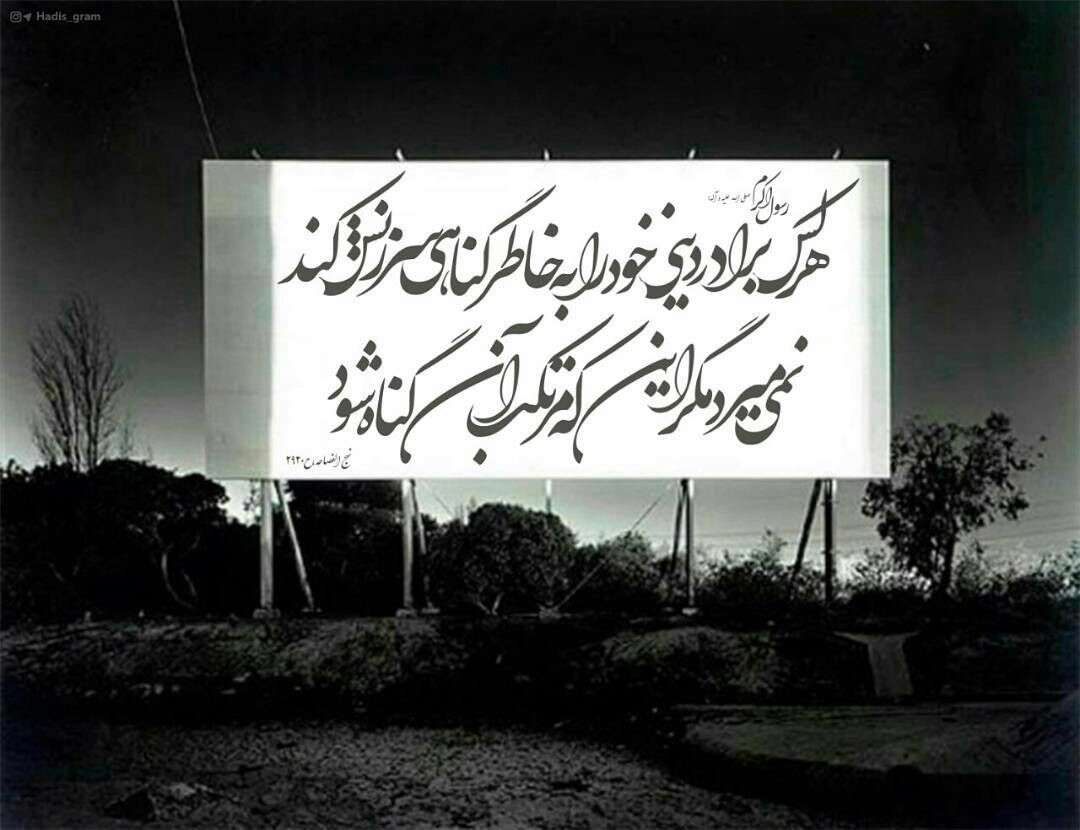 Hadis_gram
رسول اکرم صلی الله علیه و آله:
هر کس برادر دینی خود را به خاطر گناهی سرزنش کند
نمی میرد مگر این که مرتکب آن گناه شود
نهج الفصاحه، ح ۲۹۲۰